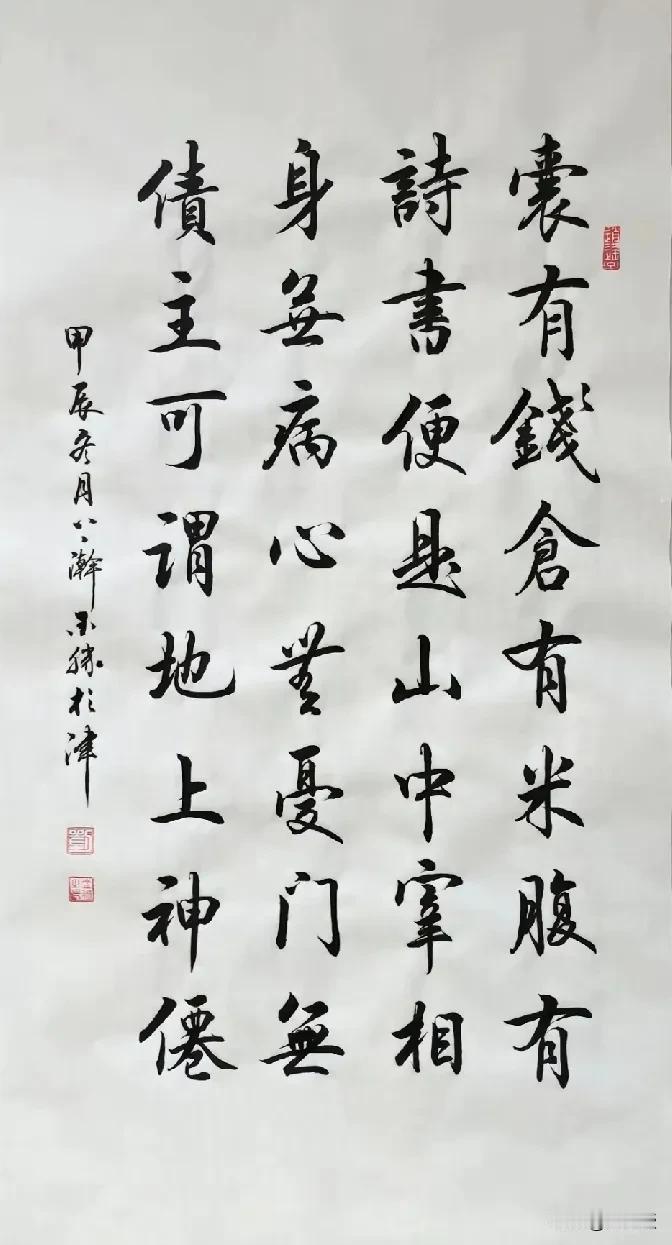 囊有錢倉有米腹有
詩書便是山中宰相
身無病心無憂门無
債主可谓地上神僊
甲辰冬月 瀚 於津